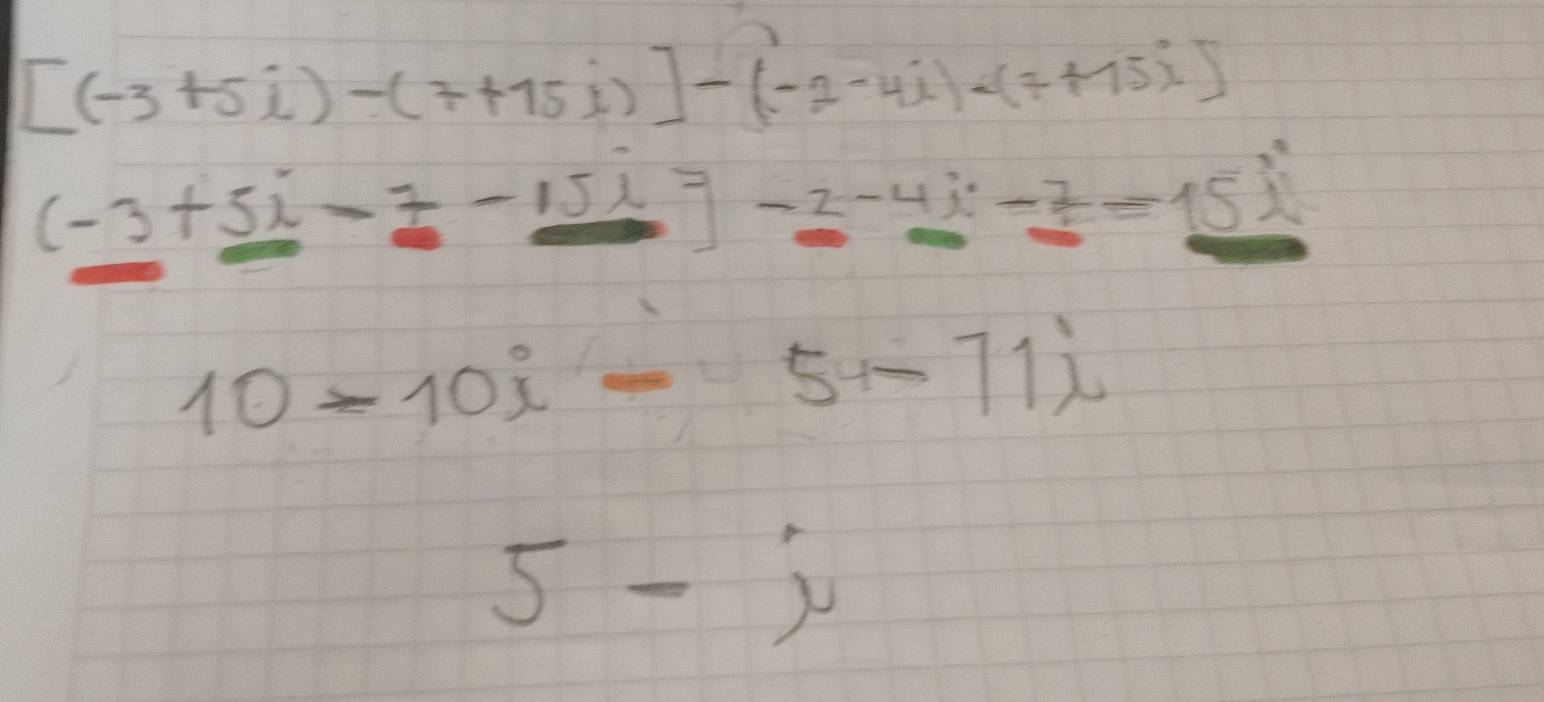 [(-3+5i)-(7+15i)]-(-2-4i)-(7+15i]
(-3+5i-7-15i]-2-4i-7-15i
10-10i - 5+-11i
5-i